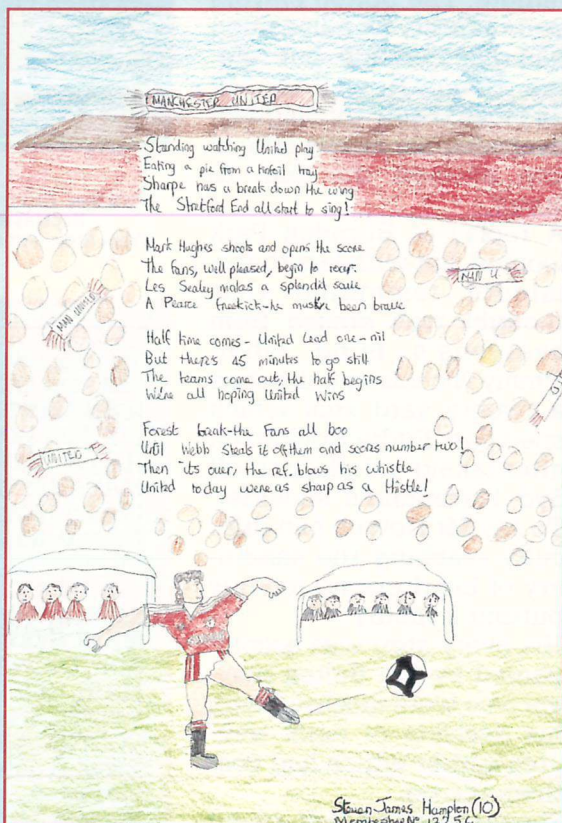 MANCHESTER UNITED
Standing watching United play
Eating a pie from a tinfoil tray
Sharpe has a break down the wing
The Stretford End all start to sing!
Mark Hughes shoots and opens the score
The fans, well pleased, begin to roar.
Les Sealey makes a splendid save
A Pearce freekick-he must've been brave
Half time comes - United lead one-nil
But there's 45 minutes to go still
The teams come out, the half begins
We're all hoping United Wins
Forest break-the Fans all boo
Until Webb steals it off them and scores number two!
Then it's over, the ref. blows his whistle
United today were as sharp as a thistle!
MAN UNITED
MAN U
UNITED
Steven James Hampton (10)
Membership Nº 13256